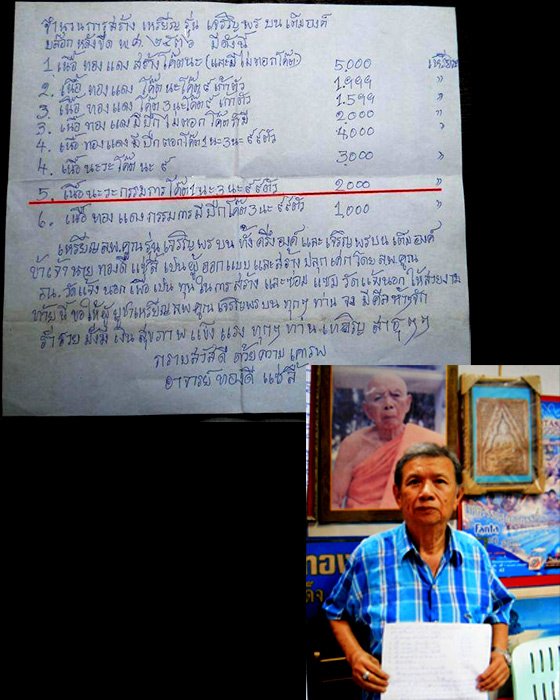 จำนวนการสร้าง เหรียญ รุ่น เจริญพร บน เต็มองค์
บล๊อก หลังขีด พ.ศ. ๒๕๓๖ มีดังนี้
1. เนื้อ ทองแดง สร้าง โค๊ตนะ (และมีไม่ตอกโค๊ต) 5,000 เหรียญ
2. เนื้อ ทองแดง โค๊ตนะ โค๊ต ๙ เก้าตัว 1,999 "
3. เนื้อ ทองแดง โค๊ต 3 นะ โค๊ต ๙ เก้าตัว 1,599 "
3. เนื้อ ทองแดง มีปีก ไม่ตอก โค๊ต ก็มี 2,000 "
4. เนื้อ ทองแดง มีปีก ตอกโค๊ต 1 นะ 3 นะ ๙ ๙ตัว 4,000 "
4. เนื้อ นะวะ โค๊ต นะ ๙ 3,000 "
5. เนื้อ นะวะ กรรมการ โค๊ต 1 นะ 3 นะ ๙ ๙ ตัว 2,000 "
6. เนื้อ ทองแดง กรรมการ มีปีก โค๊ต 3 นะ ๙๙ ตัว 1,000 "
เหรียญ ลพ.คูณ รุ่น เจริญพร บน ทั้ง ครึ่งองค์ และ เจริญพร บน เต็มองค์
ข้าเจ้า นาย ทองดี แซ่ลี้ เป็น ผู้ ออกแบบ และ สร้าง ปลุกเศก โดย ลพ.คูณ
ณ. วัดแจ้งนอก เพื่อ เป็น ทุน ในการ สร้าง และ ซ่อม แซม วัดแจ้งนอก ให้สวยงาม
ท้ายนี้ ขอให้ ผู้ บูชา เหรียญ ลพ.คูณ เจริญพร บน ทุกๆ ท่าน จง มี
ร่ำรวย มั่งมี เงิน สุขภาพ แข็ง แรง ทุกๆ ท่าน เทอญ สาธุๆๆ
กราบสวัสดี ด้วยความ เคารพ
อาจารย์ ทองดี แซ่ลี้
Fanta
ทอง